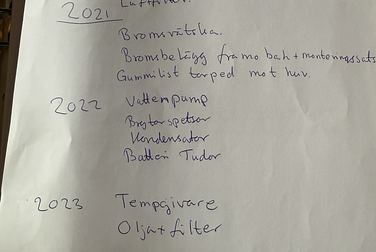 2021
Luftfilter.
Bromsvätska.
Bromsbelägg fram o bak + monteringssats
Gummilist torped mot huv.
2022 Vattenpump
Brytarspetsar
Kondensator
Batteri Tudor
2023 Tempgivare
Olja + filter